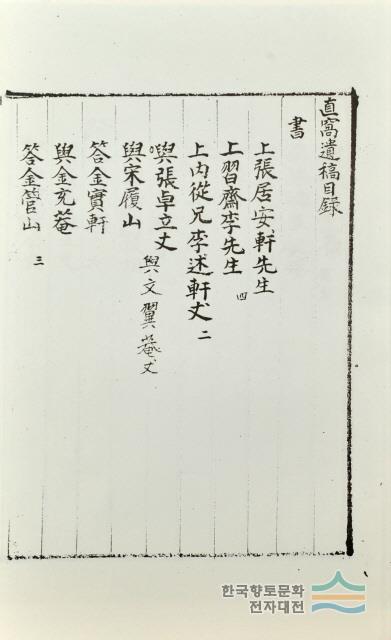 直窩遺稿目録
書
上張居安軒先生
上習齋李先生 四
上內從兄李述軒丈 二
與張卓立丈
與文翼菴丈
與宋履山
答金實軒
與金克菴
答金管山 三
한국향토문화
전자대전